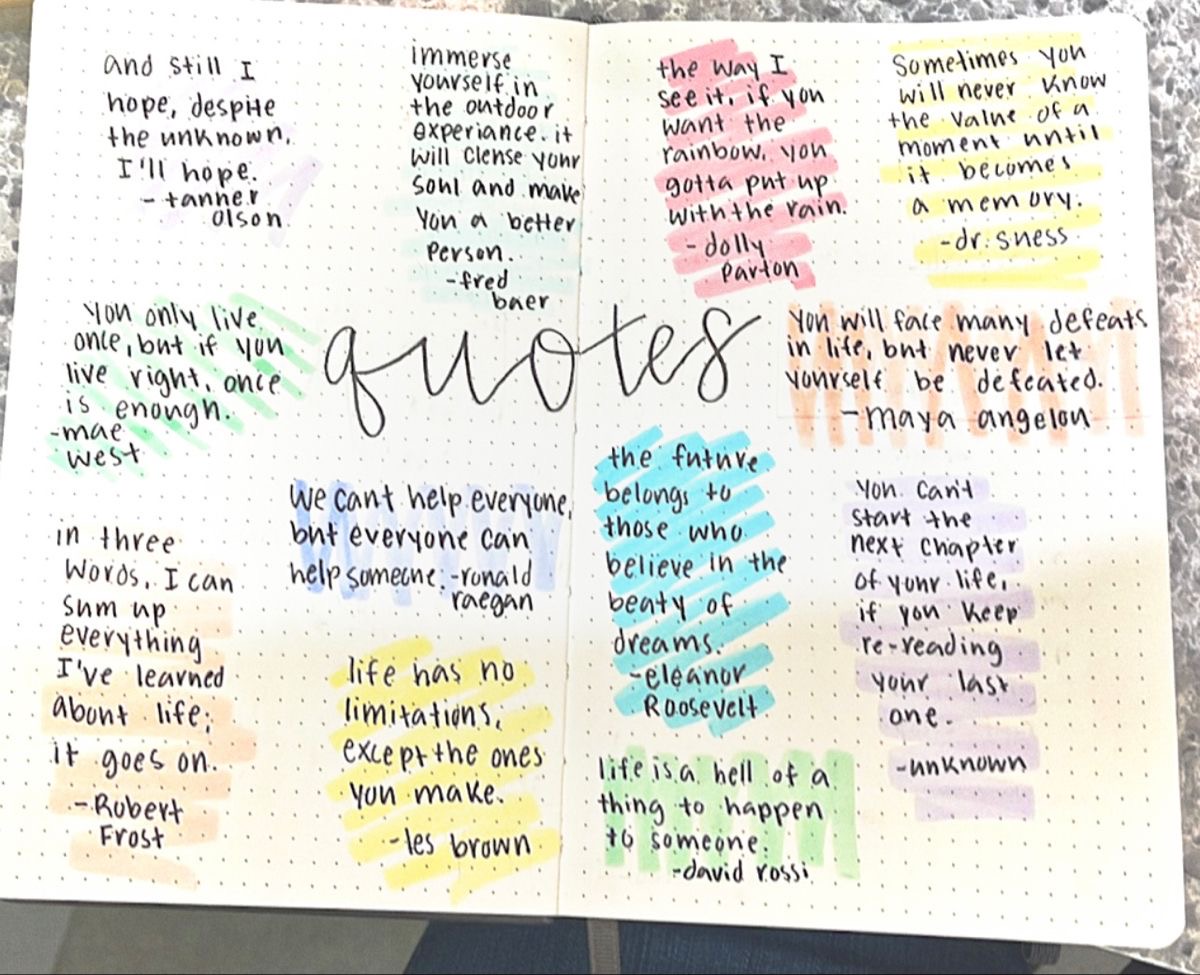 and still I
hope, despite
the unknown.
I'll hope.
- tanner
olson
immerse
yourself in
the outdoor
experiance. it
will clense your
soul and make
you a better
person.
-fred
baer
the way I
see it, if you
want the
rainbow, you
gotta put up
with the rain.
- dolly
parton
Sometimes you
will never know
the value of a
moment until
it becomes
a memory.
-dr. suess
you only live
once, but if you
live right, once
is enough.
-mae
west
quotes
you will face many defeats
in life, but never let
yourself be defeated.
-maya angelou
in three
words, I can
sum up
everything
I've learned
about life;
it goes on.
-Robert
Frost
we cant help everyone,
but everyone can
help someone. -ronald
raegan
life has no
limitations,
except the ones
you make.
-les brown
the future
belongs to
those who
believe in the
beaty of
dreams.
-eleanor
Roosevelt
life is a hell of a
thing to happen
to someone.
-david rossi
you can't
start the
next chapter
of your life,
if you keep
re-reading
your last
one.
-unknown